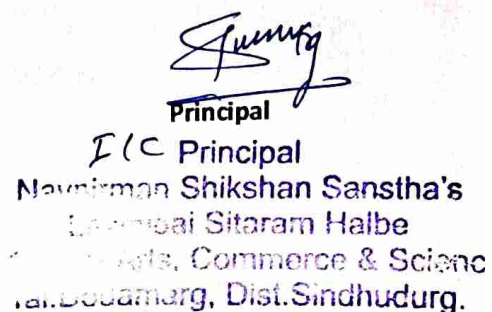 Principal
I/C Principal
Navnirman Shikshan Sanstha's
Sitaram Halbe
Arts, Commerce & Scienc
Tal.Dodamarg, Dist.Sindhudurg.